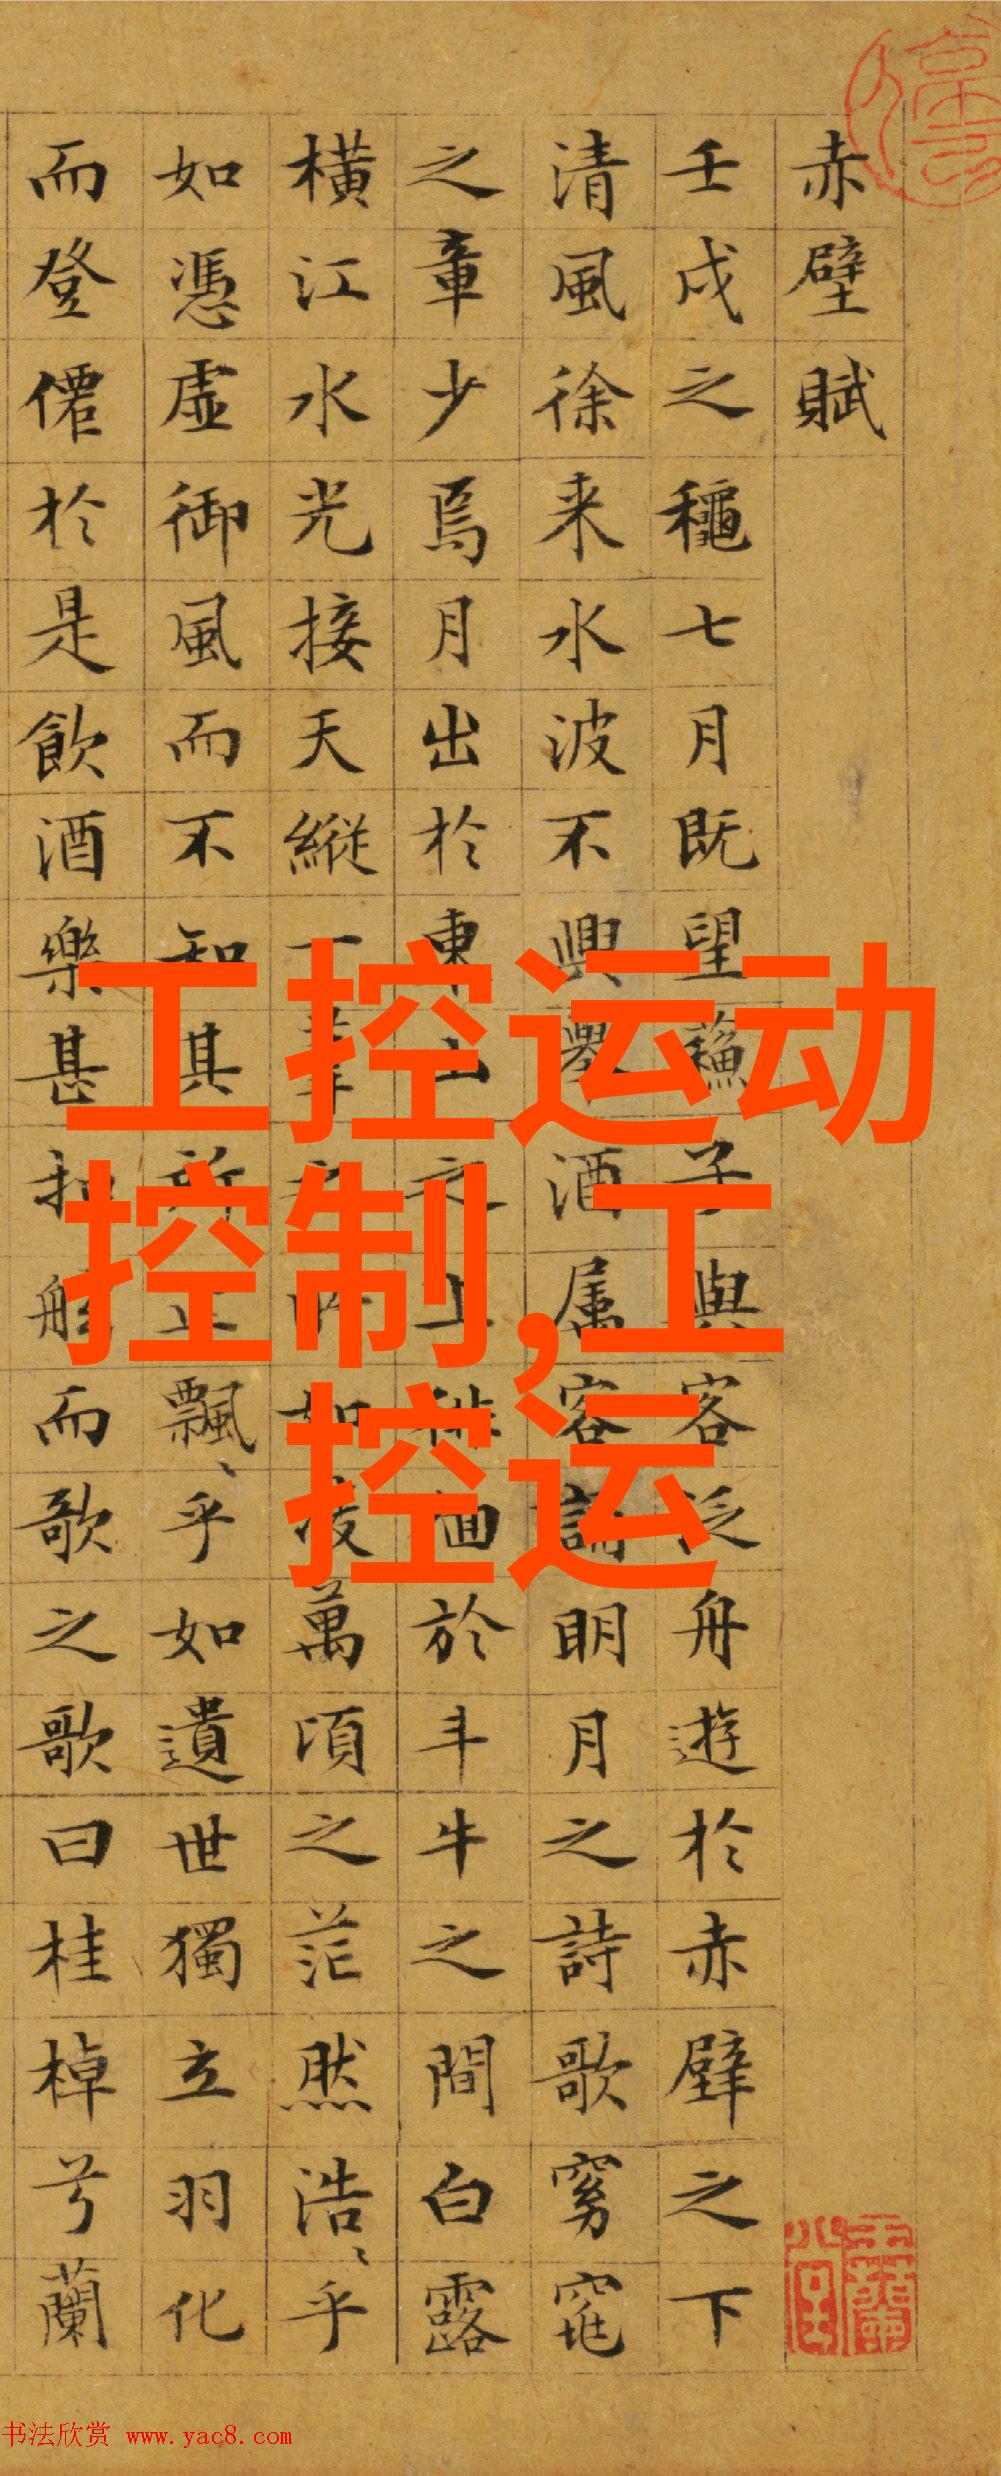 赤壁賦
壬戌之穐七月既望蘓子與客泛舟遊於赤壁之下
清風徐来水波不興舉酒属客誦明月之詩歌窈窕
之章少焉月出於東山之上徘徊於斗牛之間白露
橫江水光接天縱一葦之所如凌萬頃之茫然浩〻乎
如憑虛御風而不知其所止飄〻乎如遺世獨立羽化
而登僊於是飲酒樂甚扣舷而歌之歌曰桂棹兮蘭
工控运动
控制,工
控运
书法欣赏 www.yac8.com